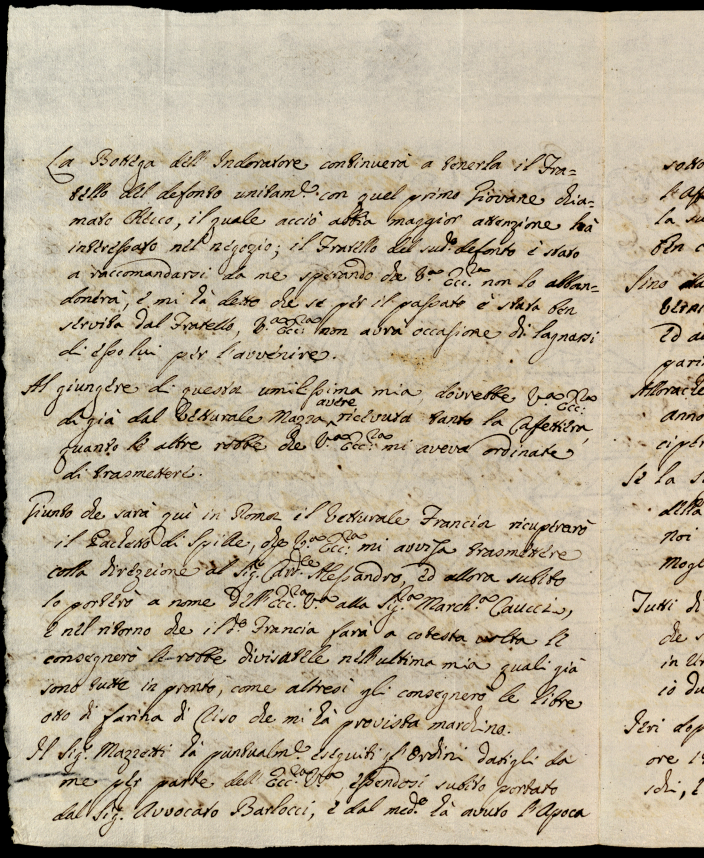 La Bottega dell' Indoratore continuerà a tenerla il Fra=
tello del defonto unitam.te con quel primo Giovane chia=
mato Checco, il quale acciò abbia maggior attenzione hà
interessato nel negozio; il Fratello del sud.o defonto è stato
a raccomandarsi da me sperando che V.ra Ecc.za non lo abban=
donerà, e mi hà detto che se per il passato è stata ben
servita dal Fratello, V.ra Ecc.za non avrà occasione di lagnarsi
di esso lui per l'avvenire.
Al giungere di questa umilissima mia, dovrebbe V.ra Ecc.za
di già dal Vetturale Mazza avere ricevuta tanto la Caffettiera,
quanto le altre robbe che V.ra Ecc.za mi aveva ordinate
di trasmetterl.
Giunto che sarà quì in Roma il Vetturale Francia ricuperarò
il Pachetto di Spille, che V.ra Ecc.za mi avvisa trasmettere
colla direzzione al Sig.r Alessandro, ed allora subito
lo porterò a nome dell'Ecc.za V.ra alla Sig.ra March.a Caucci,
e nel ritorno che il d.o Francia farà a cotesta volta le
consegnerò le robbe divisatele nell'ultima mia quali già
sono tutte in pronto, come altresì gli consegnerò le libre
otto di farina di Riso che mi hà provista marchino.
Il Sig.r Mazzetti hà puntualm.te eseguiti gl'Ordini datigli da
me per parte dell'Ecc.za V.ra, essendosi subito portato
dal Sig.r Avvocato Barlocci, e dal med.o hà avuto l'Apoca
sotto
la su
ben c
sino da
ed a
parin
Allorachè
anno
ciper
Se la S
della
noi
mogl
Tutti d
che s
in Ur
io du
Jeri dop
ore 1
schi, e